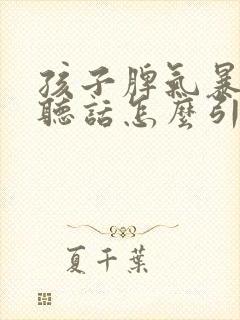 孩子脾氣暴
聽話怎麼引
夏千葉